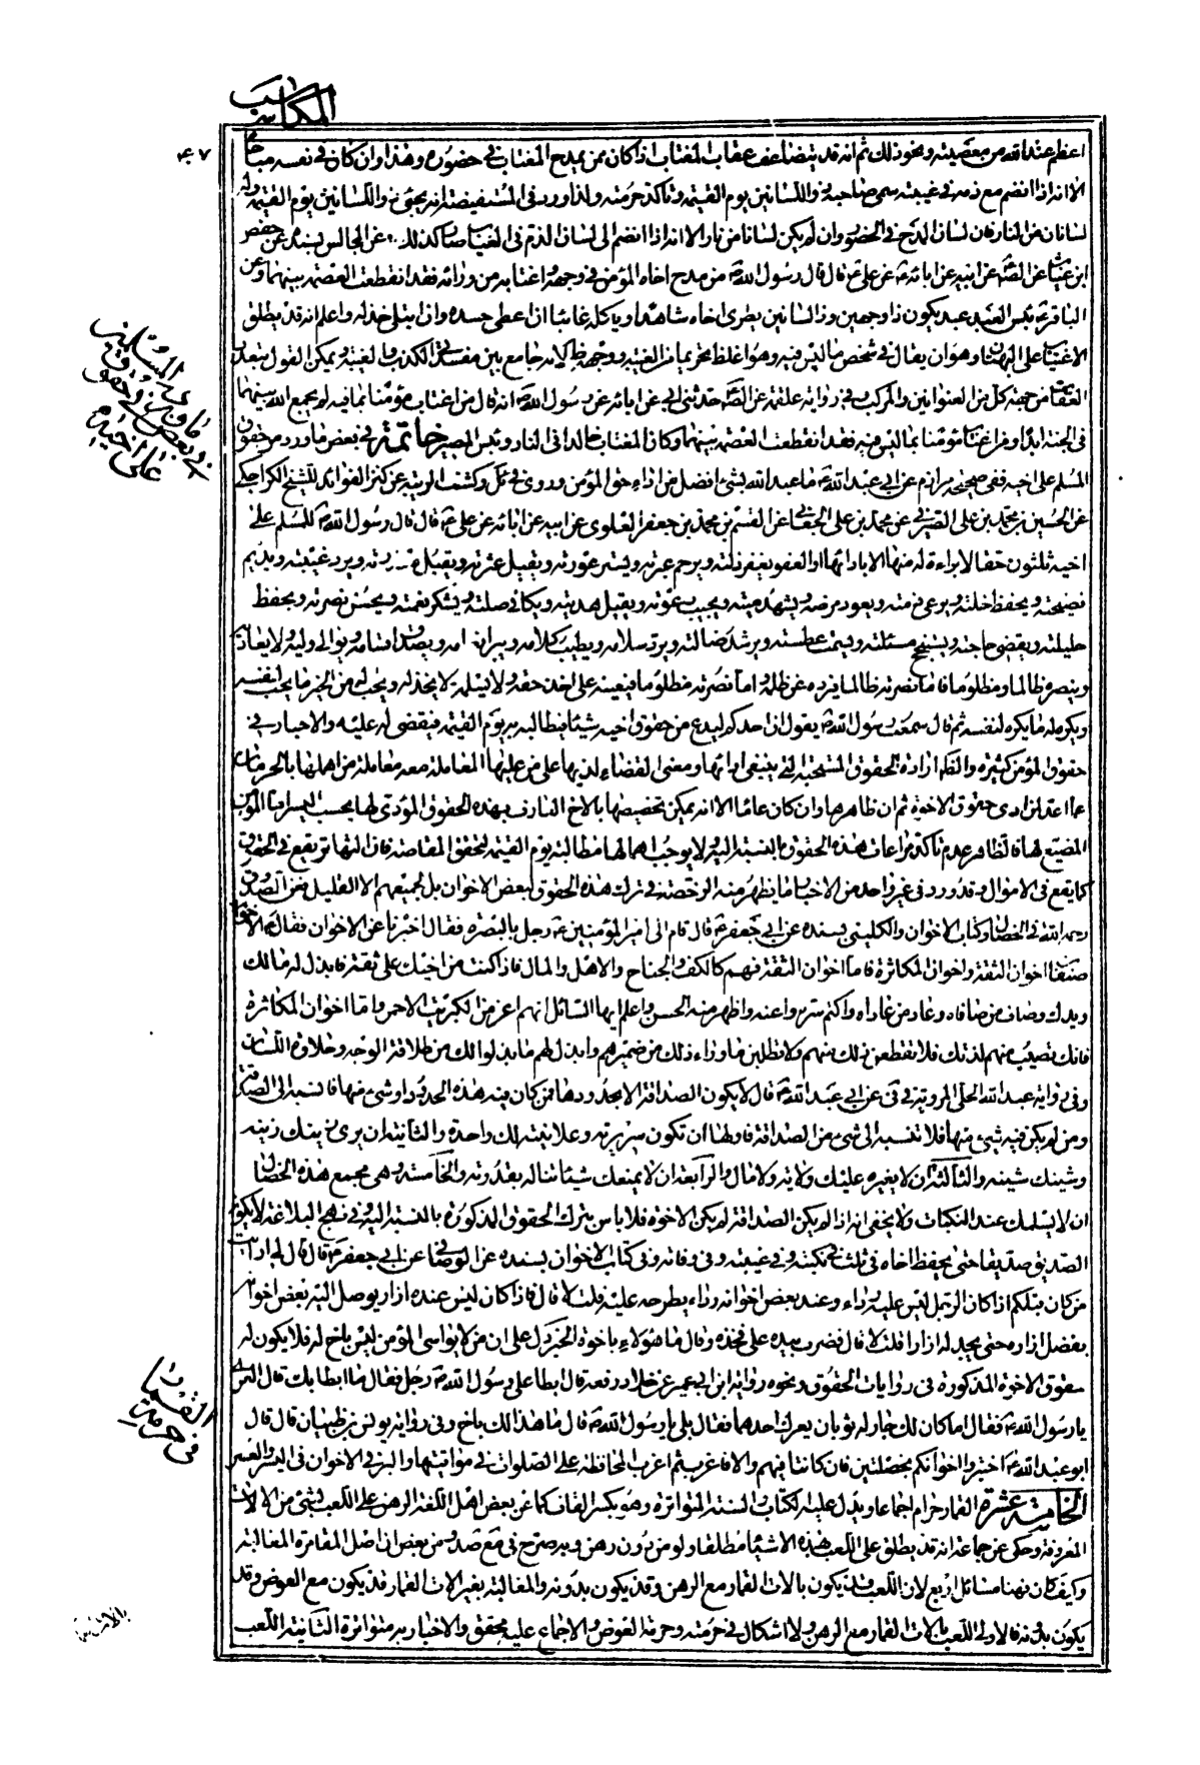 المكاسب
٤٧
اعظم عند الله من معصيته ونحو ذلك ثم انه قد يتضاعف عقاب المغتاب اذا كان ممن يمدح المغتاب في حضوره وهذا وان كان في نفسه مباحا
الا انه اذا انضم مع ذمه في غيبته سمى صاحبه ذو اللسانين يوم القيمة وتاكد حرمته ولذا ورد في المستفيضة انه يجيئ ذو اللسانين يوم القيمة وله
لسانان من النار فان لسان المدح في الحضور وان لم يكن لسانا من نار الا انه اذا انضم الى لسان الذم في الغياب صار كذلك وعن المجالس بسنده عن حفص
ابن غياث عن الصادق عن ابيه عن ابائه ع عن علي ع قال قال رسول الله ص من مدح اخاه المؤمن في وجهه واغتابه من ورائه فقد انقطعت العصمة بينهما وعن
الباقر ع بئس العبد عبد يكون ذا وجهين وذا لسانين يطرى اخاه شاهدا وياكله غائبا ان اعطى حسده وان ابتلى خذله واعلم انه قد يطلق
الاغتياب على البهتان وهو ان يقال في شخص ما ليس فيه وهو اغلظ تحريما من الغيبة ووجهه ظ لانه جامع بين مفسدتي الكذب والغيبة ويمكن القول بتعدد
العقاب من جهة كل من العنوانين والمركب وفي رواية علقمة عن الص حدثني ابي عن ابائه عن رسول الله ص انه قال من اغتاب مؤمنا بما فيه لم يجمع الله بينهما
في الجنة ابدا ومن اغتاب مؤمنا بما ليس فيه فقد انقطعت العصمة بينهما وكان المغتاب خالدا في النار وبئس المصير خاتمة في بعض ما ورد من حقوق
المسلم على اخيه ففي صحيحة مرازم عن ابي عبد الله ع ما عبد الله بشئ افضل من اداء حق المؤمن وروى في ئل وكشف الريبة عن كنز الفوائد للشيخ الكراجكي
عن الحسين بن محمد بن علي الصيرفي عن محمد بن علي الجعابي عن القسم بن محمد بن جعفر العلوي عن ابيه عن ابائه عن علي ع قال قال رسول الله ص للمسلم على
اخيه ثلثون حقا لا براءة له منها الا باداتها او العفو يغفر زلته ويرحم عبرته ويستر عورته ويقيل عثرته ويقبل معذرته ويرد غيبته ويديم
نصيحته ويحفظ خلته ويرعى ذمته ويعود مرضه ويشهد ميته ويجيب دعوته ويقبل هديته ويكافى صلته ويشكر نعمته ويحسن نصرته ويحفظ
حليلته ويقضى حاجته ويستنجح مسئلته ويسمت عطسته ويرشد ضالته ويرد سلامه ويطيب كلامه ويبر انعامه ويصدق اقسامه ويوالى وليه ولا يعاديه
وينصره ظالما ومظلوما فاما نصرته ظالما فيرده عن ظلمه واما نصرته مظلوما فيعينه على اخذ حقه ولا يسلمه ولا يخذله ويحب له من الخير ما يحب لنفسه
ويكره له ما يكره لنفسه ثم قال سمعت رسول الله ص يقول ان احدكم ليدع من حقوق اخيه شيئا فيطالبه به يوم القيمة فيقضى له عليه والاخبار في
حقوق المؤمن كثيرة والظ ارادة الحقوق المستحبة التي ينبغي اداؤها ومعنى القضاء لذيها على من عليها المعاملة معه معاملة من اهملها بالحرمان
عما اعد لمن ادى حقوق الاخوة ثم ان ظاهرها وان كان عاما الا انه يمكن تخصيصها بالاخ العارف بهذه الحقوق المؤدى لها بحسب اليسر اما المؤمن
المضيع لها فالظاهر عدم تاكد مراعات هذه الحقوق بالنسبة اليه ولا يوجب اهمالها مطالبته يوم القيمة لتحقق المقاصة فان التهاتر يقع في الحقوق
كما يقع في الاموال وقد ورد في غير واحد من الاخبار ما يظهر منه الرخصة في ترك هذه الحقوق لبعض الاخوان بل لجميعهم الا القليل فعن الصدوق
رحمه الله في الخصال وكتاب الاخوان والكليني بسنده عن ابي جعفر ع قال قام الى امير المؤمنين ع رجل بالبصرة فقال اخبرنا عن الاخوان فقال ع الاخوان
صنفان اخوان الثقة واخوان المكاشرة فاما اخوان الثقة فهم كالكف والجناح والاهل والمال فاذا كنت من اخيك على ثقة فابذل له مالك
ويدك وصاف من صافاه وعاد من عاداه واكتم سره واعنه واظهر منه الحسن واعلم ايها السائل انهم اعز من الكبريت الاحمر واما اخوان المكاشرة
فانك تصيب منهم لذتك فلا تقطعن ذلك منهم ولا تطلبن ما وراء ذلك من ضميرهم وابذل لهم ما بذلوا لك من طلاقة الوجه وحلاوة اللسان
وفي رواية عبد الله الحلبي المروية في في عن ابي عبد الله ع قال لا يكون الصداقة الا بحدودها فمن كان فيه هذه الحدود او شئ منها فانسبه الى الصداقة
ومن لم يكن فيه شئ منها فلا تنسبه الى شئ من الصداقة فاولها ان تكون سريرته وعلانيته لك واحدة والثانية ان يرى زينك زينه
وشينك شينه والثالثة ان لا يغيره عليك ولاية ولا مال والرابعة ان لا يمنعك شيئا تناله بقدرته والخامسة وهى مجمع هذه الخصال
ان لا يسلمك عند النكبات ولا يخفى انه اذا لم يكن الصداقة لم يكن الاخوة فلا باس بترك الحقوق المذكورة بالنسبة اليه وفي نهج البلاغة لا يكون
الصديق صديقا حتى يحفظ اخاه في ثلث في نكبته وفي غيبته وفي وفاته وفي كتاب الاخوان بسنده عن الوصافي عن ابي جعفر ع قال قال لي ارايت
من كان قبلكم اذا كان الرجل ليس عليه رداء وعند بعض اخوانه رداء يطرحه عليه قلت لا قال فاذا كان ليس عنده ازار يوصل اليه بعض اخوانه
بفضل ازاره حتى يجد له ازارا قلت لا قال فضرب بيده على فخذه وقال ما هؤلاء باخوة الخبر دل على ان من لا يواسي المؤمن ليس باخ له فلا يكون له
حقوق الاخوة المذكورة في روايات الحقوق ونحوه رواية ابن ابي عمير عن خلاد رفعه قال ابطا على رسول الله ص رجل فقال ما ابطا بك قال العرى
يا رسول الله ص فقال اما كان لك جار له ثوبان يعيرك احدهما فقال بلى يا رسول الله ص قال ما هذا لك باخ وفي رواية يونس بن ظبيان قال قال
ابو عبد الله ع اختبروا اخوانكم بخصلتين فان كانتا فيهم والا فاعزب ثم اعزب المحافظة على الصلوات في مواقيتها والبر في الاخوان في اليسر والعسر
الخامسة عشرة القمار حرام اجماعا ويدل عليه الكتاب والسنة المتواترة وهو بكسر القاف كما عن بعض اهل اللغة الرهن على اللعب بشئ من الالات
المعروفة وحكى عن جماعة انه قد يطلق على اللعب بهذه الاشياء مطلقا ولو من دون رهن وبه صرح في مع صد وعن بعض ان اصل المقامرة المغالبة
وكيف كان فهنا مسائل اربع لان اللعب قد يكون بالات القمار مع الرهن وقد يكون بدونه والمغالبة بغير الات القمار قد يكون مع العوض وقد
يكون بدونه فالاولى اللعب بالات القمار مع الرهن ولا اشكال في حرمته وحرمة العوض والاجماع عليه محقق والاخبار به متواترة الثانية اللعب
فيما ورد من حقوق المسلمين
في بعض
على اخيه
القمار
في حرمة
بالات